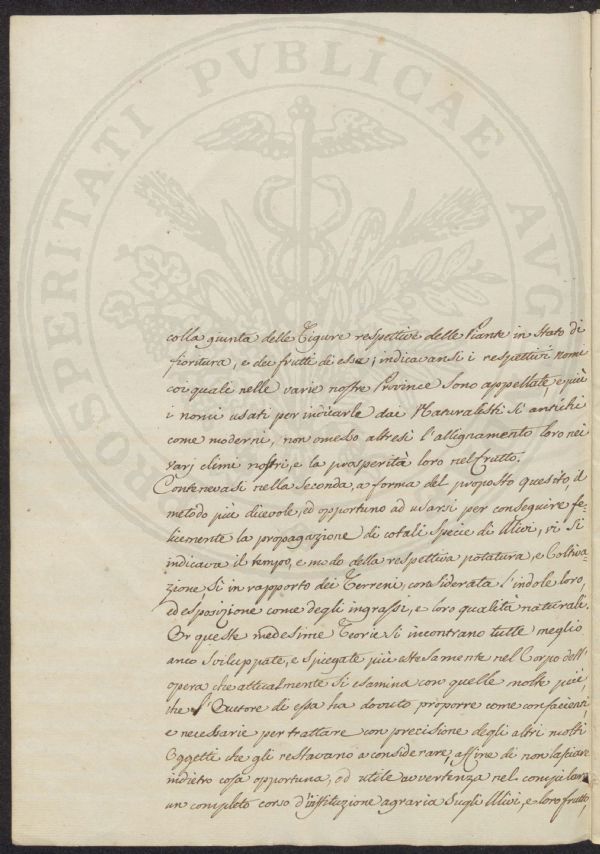 PROSPERITATI PVBLICAE AVG
colla giunta delle Figure respettive delle Piante in stato di
fioritura, e dei frutti di esse; indicavansi i respettivi nomi
coi quali nelle varie nostre Province sono appellate, e più
i nomi usati per indicarle dai Naturalisti sì antichi
come moderni, non omesso altresì l'allignamento loro nei
varj climi nostri, e la prosperità loro nel frutto.
Contenevasi nella seconda, a forma del proposto quesito, il
metodo più dicevole, ed opportuno ad usarsi per conseguire fe-
licemente la propagazione di cotali specie di Ulivi, vi si
indicava il tempo, e modo della respettiva potatura, e Coltiva-
zione, sì in rapporto dei Terreni, considerata l'indole loro,
ed esposizione come degli ingrassi, e loro qualità naturali.
Or queste medesime Teorie si incontrano tutte meglio
anco sviluppate, e spiegate più estesamente nel Corpo dell'
opera che attualmente si esamina con quelle molte più,
che l'Autore di essa ha dovuto proporre come confacienti,
e necessarie per trattare con precisione degli altri molti
Oggetti che gli restavano a considerare, affine di non lasciare
indietro cosa opportuna, ed utile avvertenza nel compilare
un completo corso d'instituzione agraria sugli Ulivi, e loro frutto,